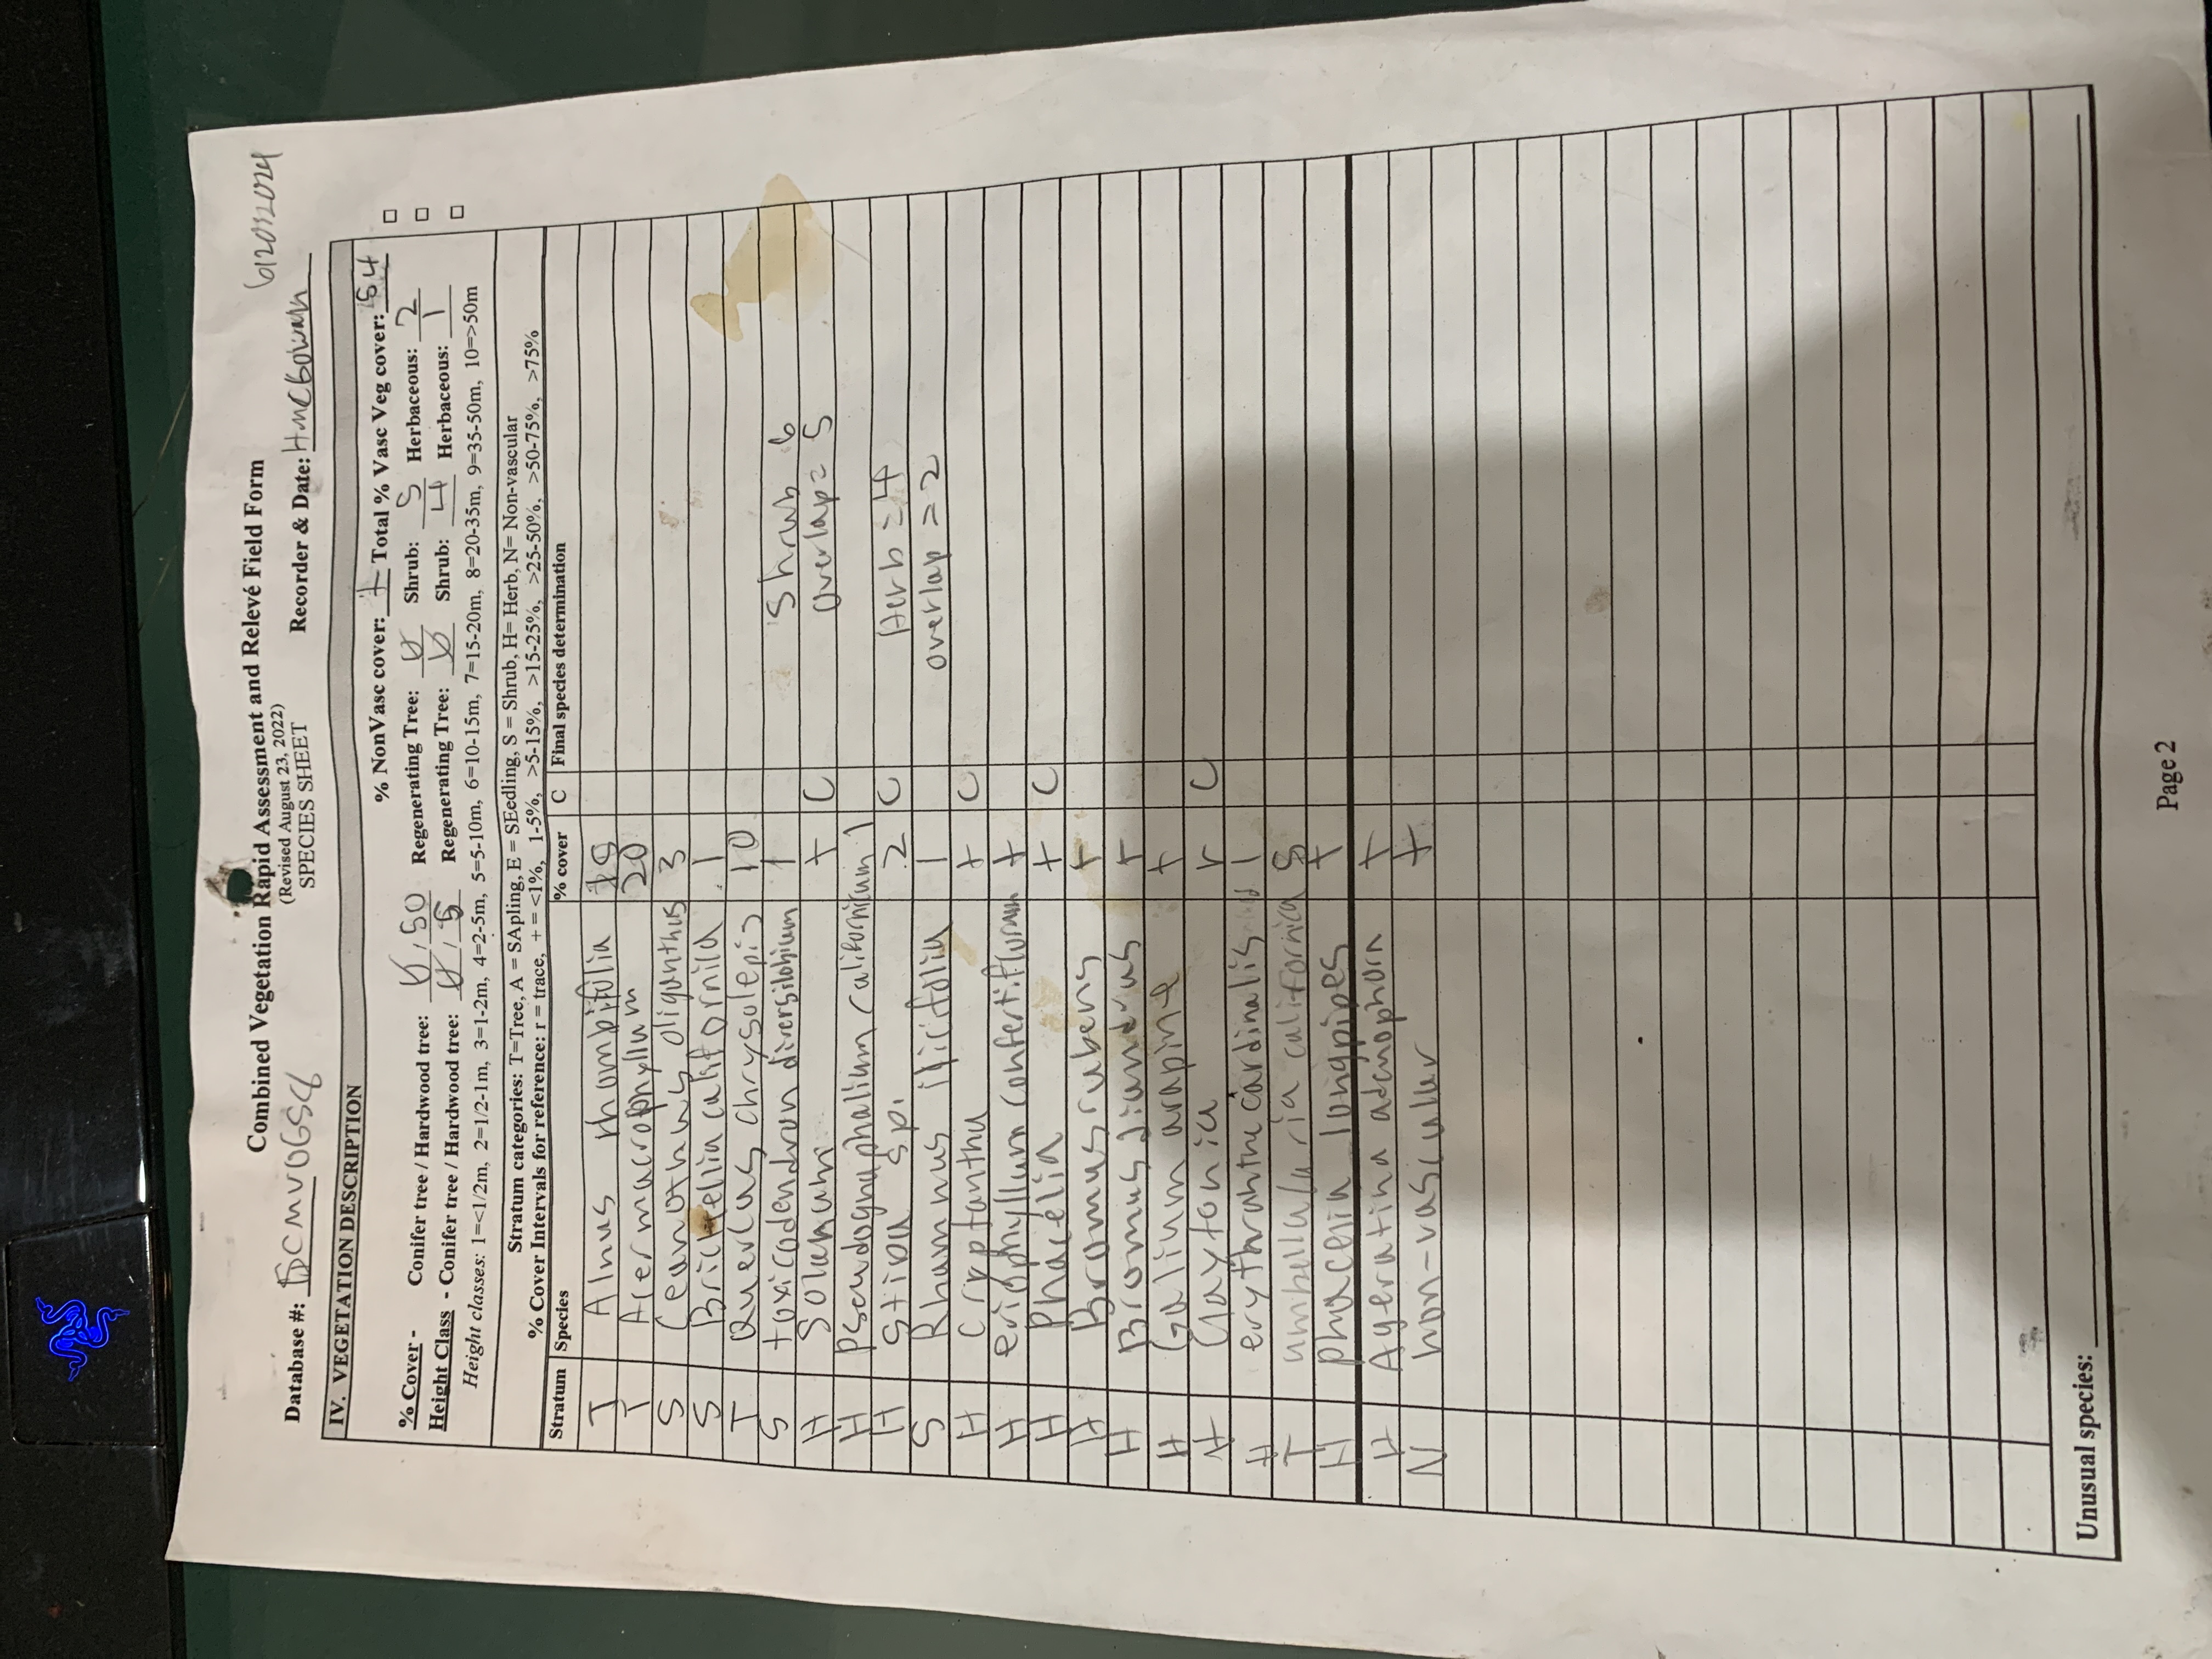 Combined Vegetation Rapid Assessment and Relevé Field Form
(Revised August 23, 2022)
SPECIES SHEET
6/20/2024
Database #: Recorder & Date:
IV. VEGETATION DESCRIPTION
% NonVasc cover: + Total % Vasc Veg cover: 54
% Cover - Conifer tree / Hardwood tree: 0 / 50 Regenerating Tree: 0 Shrub: 5 Herbaceous: 2
Height Class - Conifer tree / Hardwood tree: 0 / 5 Regenerating Tree: 0 Shrub: 4 Herbaceous: 1
Height classes: 1=<1/2m, 2=1/2-1m, 3=1-2m, 4=2-5m, 5=5-10m, 6=10-15m, 7=15-20m, 8=20-35m, 9=35-50m, 10=>50m
Stratum categories: T=Tree, A = SApling, E = SEedling, S = Shrub, H= Herb, N= Non-vascular
% Cover Intervals for reference: r = trace, + = <1%, 1-5%, >5-15%, >15-25%, >25-50%, >50-75%, >75%
Stratum Species % cover C Final species determination
T Alnus rhombifolia
T Acer macrophyllum 20
S Ceanothus oliganthus 3
S Brickellia californica 1
T Quercus chrysolepis 10
S toxicodendron diversilobium 1 Shrub 6
H Solanum + C Overlap = 5
H Pseudognaphalium californicum 1
H Stipa sp. 2 C Herb = 4
S Rhamnus ilicifolia 1 overlap = 2
H Cryptantha + C
H eriophyllum confertiflorum +
H Phacelia + C
H Bromus rubens +
H Bromus diandrus +
H Galium aparine +
H Claytonia r C
H erythranthe cardinalis 1
T umbellularia californica 5
H phacelia longipipes +
H Ageratina adenophora +
N non-vascular +
Unusual species:
Page 2